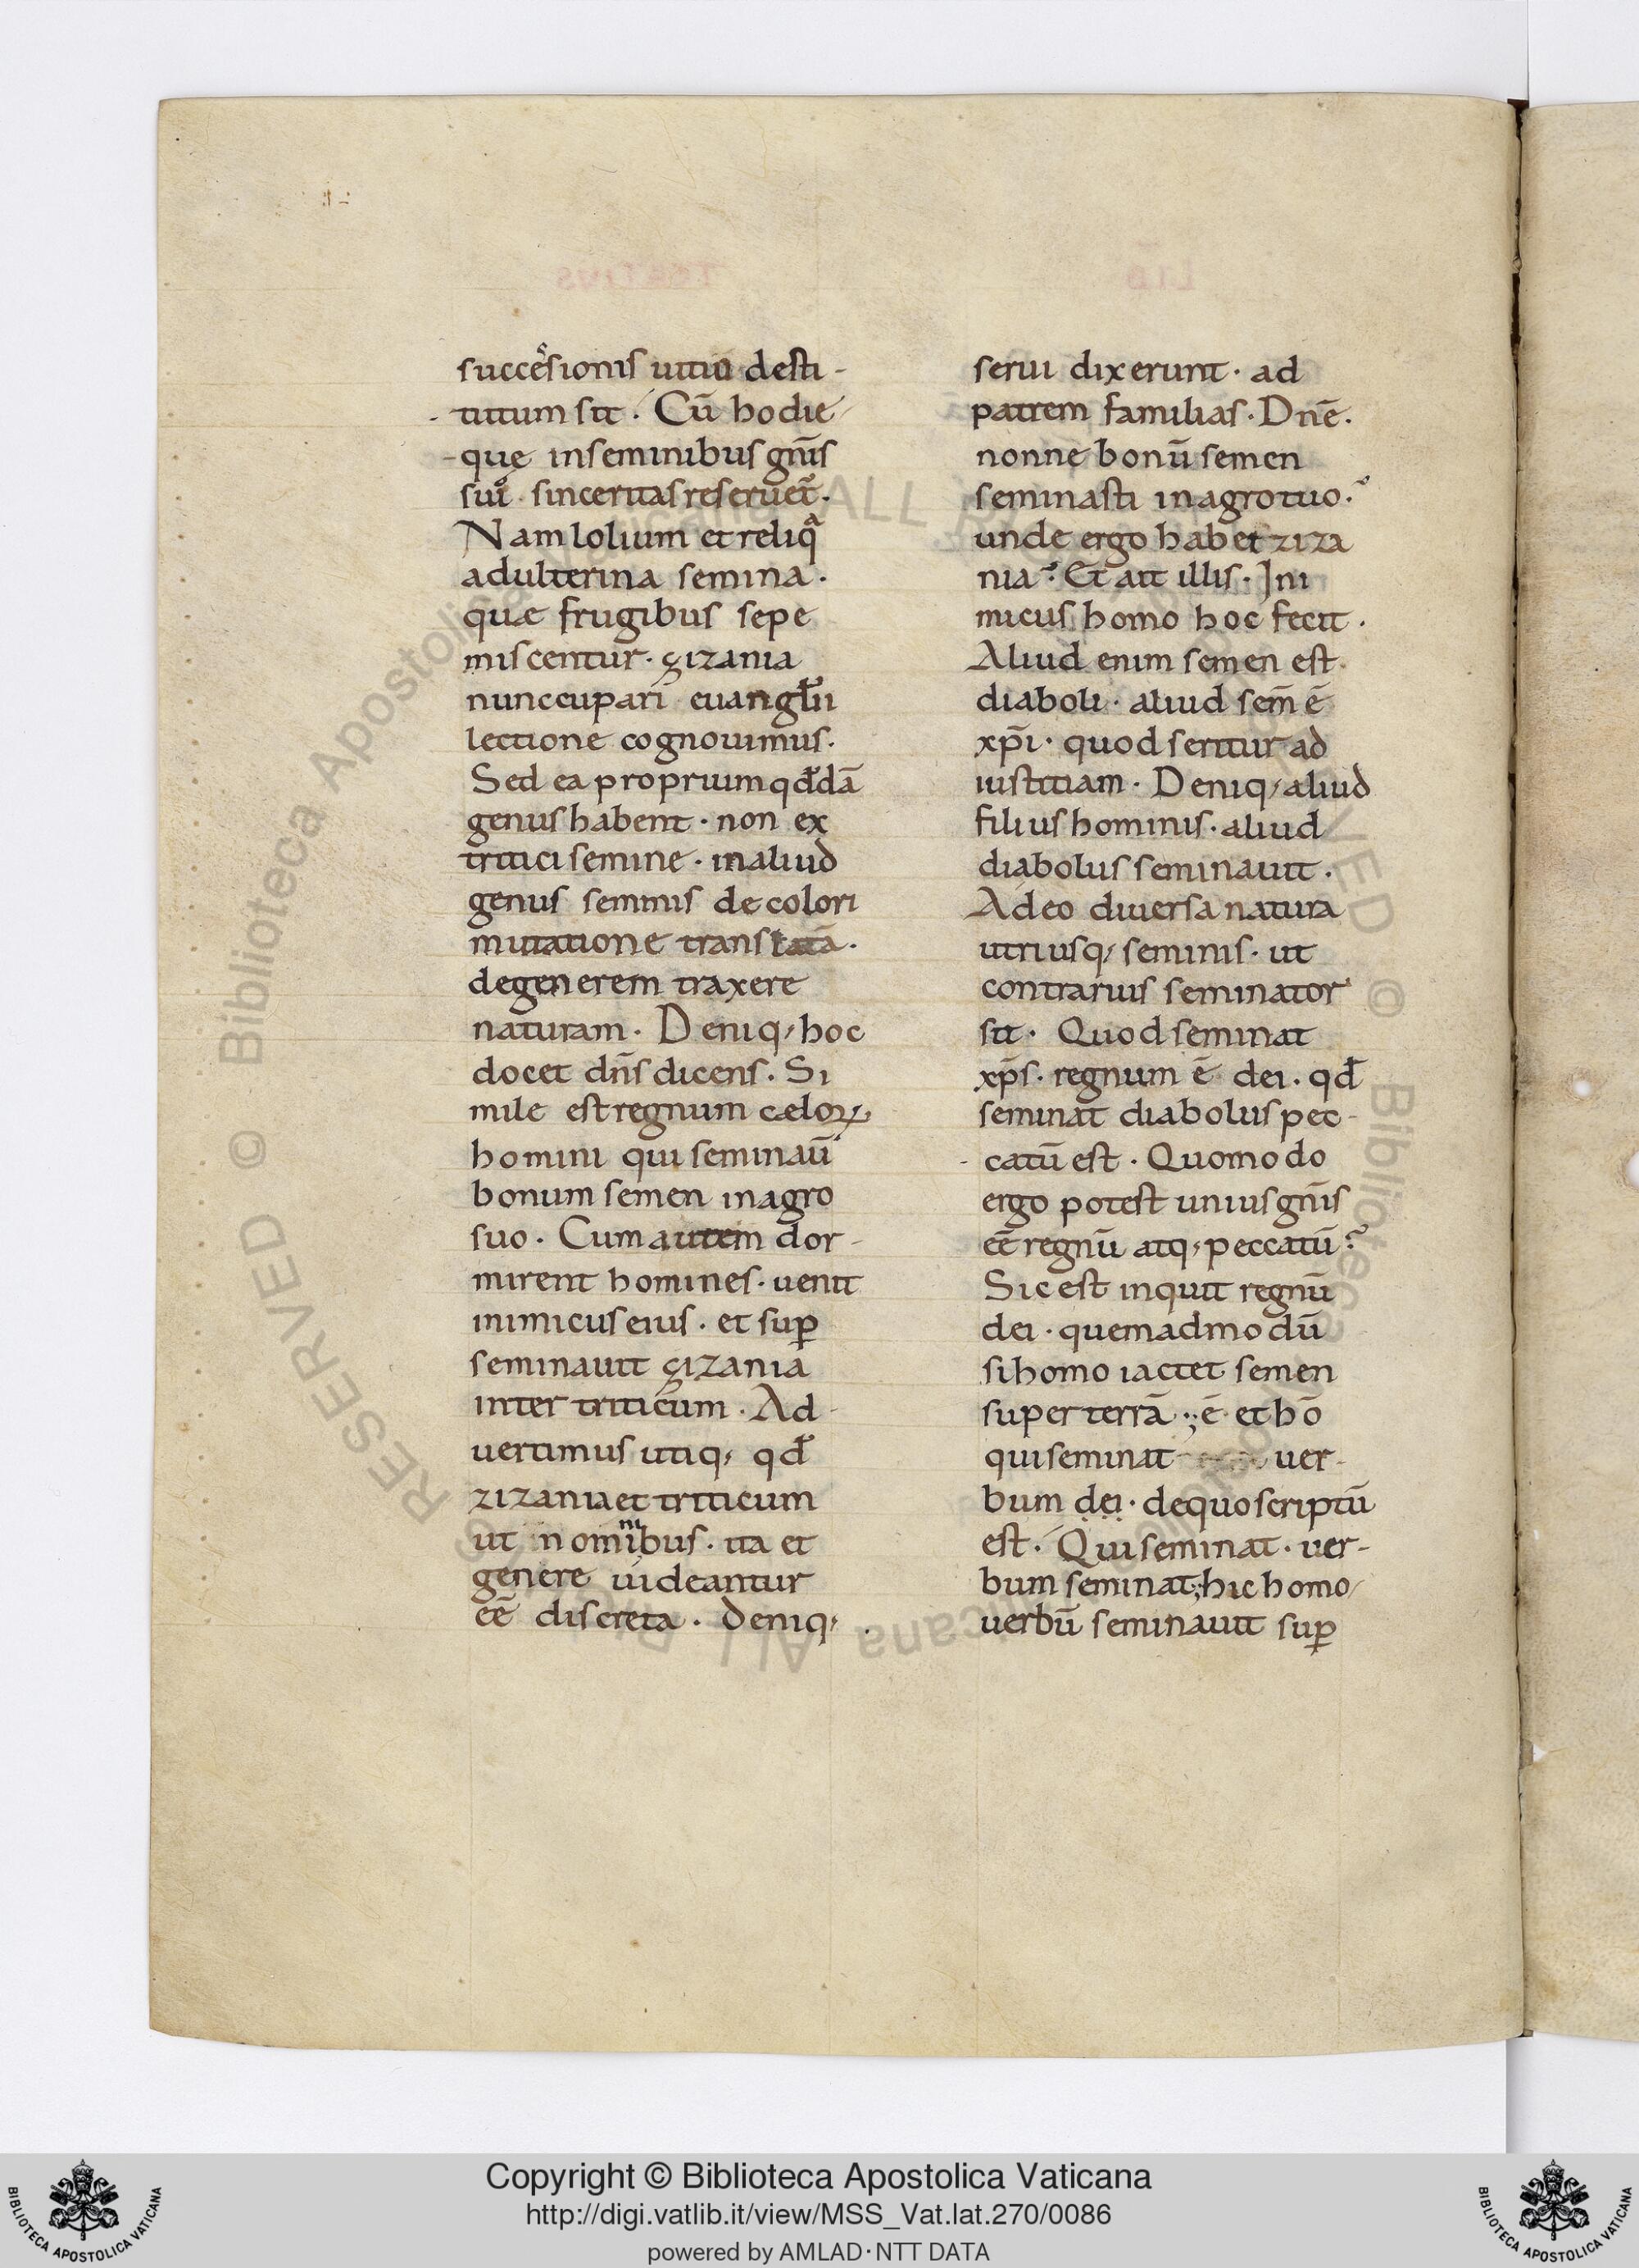 succesionis uitio desti-
tutum sit. Cū hodie
que inseminibus gnīs
sui sinceritas reseruet̄.
Nam lolium et reliq
adulterina semina.
quæ frugibus sepe
miscentur. çizania
nunccupari euanglīi
lectione cognouimus.
Sed ea proprium qddā
genus habent. non ex
tritici semine. in aliud
genus seminis decolori
mutatione translatā.
degenerem traxere
naturam. Deniq; hoc
docet dn̄s dicens. Si
mile est regnum cæloꝝ
homini qui seminau̅
bonum semen in agro
suo. Cum autem dor-
mirent homines. uenit
inimicus eius. et suꝑ
seminauit çizania
inter triticum. Ad
uertimus utiq; qd̄
zizania et triticum
ut nominibus. ita et
genere uideantur
eē discreta. deniq;
serui dixerunt. ad
patrem familias. Dnē.
nonne bonū semen
seminasti in agro tuo?
unde ergo habet ziza
nia? Et ait illis. Ini
micus homo hoc fecit.
Aliud enim semen est
diaboli. aliud sem̄ ē
xp̄i. quod seritur ad
iustitiam. Deniq; aliud
filius hominis. aliud
diabolus seminauit.
Adeo diuersa natura
utriusq; seminis. ut
contrarius seminator
sit. Quod seminat
xp̄s. regnum ē dei. qd̄
seminat diabolus pec-
catū est. Quomodo
ergo potest unius gnīs
eē regnū atq; peccatū?
Sic est inquit regnū
dei. quemadmodū
si homo iactet semen
super terrā.; ē et hō
qui seminat uer-
bum dei. de quo scriptū
est. Qui seminat. uer-
bum seminat; hic homo
uerbū seminauit suꝑ
Copyright © Biblioteca Apostolica Vaticana
http://digi.vatlib.it/view/MSS_Vat.lat.270/0086
powered by AMLAD·NTT DATA
BIBLIOTECA APOSTOLICA VATICANA
BIBLIOTECA APOSTOLICA VATICANA